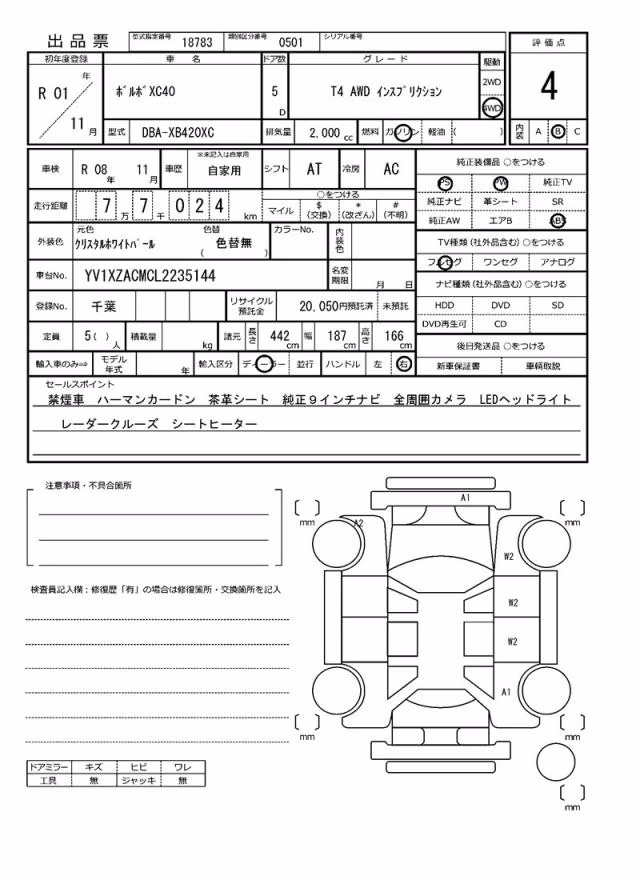 出品票 型式指定番号 18783 類別区分番号 0501 シリアル番号
初年度登録 車名 ドア数 グレード 駆動 評価点
R 01 年 11 月 ボルボXC40 5 D T4 AWD インスプリクション 2WD 4WD 4
型式 DBA-XB420XC 排気量 2,000 cc 燃料 ガソリン 軽油 ( ) 内装 A B C
車検 R 08 年 11 月 車歴 ※未記入は自家用 自家用 シフト AT 冷房 AC
走行距離 7 万 7 千 0 2 4 km ○をつける マイル $ (交換) * (改ざん) # (不明)
外装色 元色 クリスタルホワイトパール 色替 色替無 ( ) カラーNo. 内装色
車台No. YV1XZACMCL2235144 名変期限 月 日
登録No. 千葉 リサイクル預託金 20,050円預託済 未預託
定員 5( ) 人 積載量 kg 諸元 長さ 442 cm 幅 187 cm 高さ 166 cm
輸入車のみ⇒ モデル年式 年 輸入区分 ディーラー 並行 ハンドル 左 右
純正装備品 ○をつける
PS PW 純正TV
純正ナビ 革シート SR
純正AW エアB ABS
TV種類 (社外品含む) ○をつける
フルセグ ワンセグ アナログ
ナビ種類 (社外品含む) ○をつける
HDD DVD SD
DVD再生可 CD
後日発送品 ○をつける
新車保証書 車輌取説
セールスポイント
禁煙車 ハーマンカードン 茶革シート 純正9インチナビ 全周囲カメラ LEDヘッドライト
レーダークルーズ シートヒーター
注意事項・不具合箇所
検査員記入欄：修復歴「有」の場合は修復箇所・交換箇所を記入
ドアミラー キズ ヒビ ワレ
工具 無 ジャッキ 無
A1
mm mm
A2
W2
W2
W2
A1
mm mm
mm